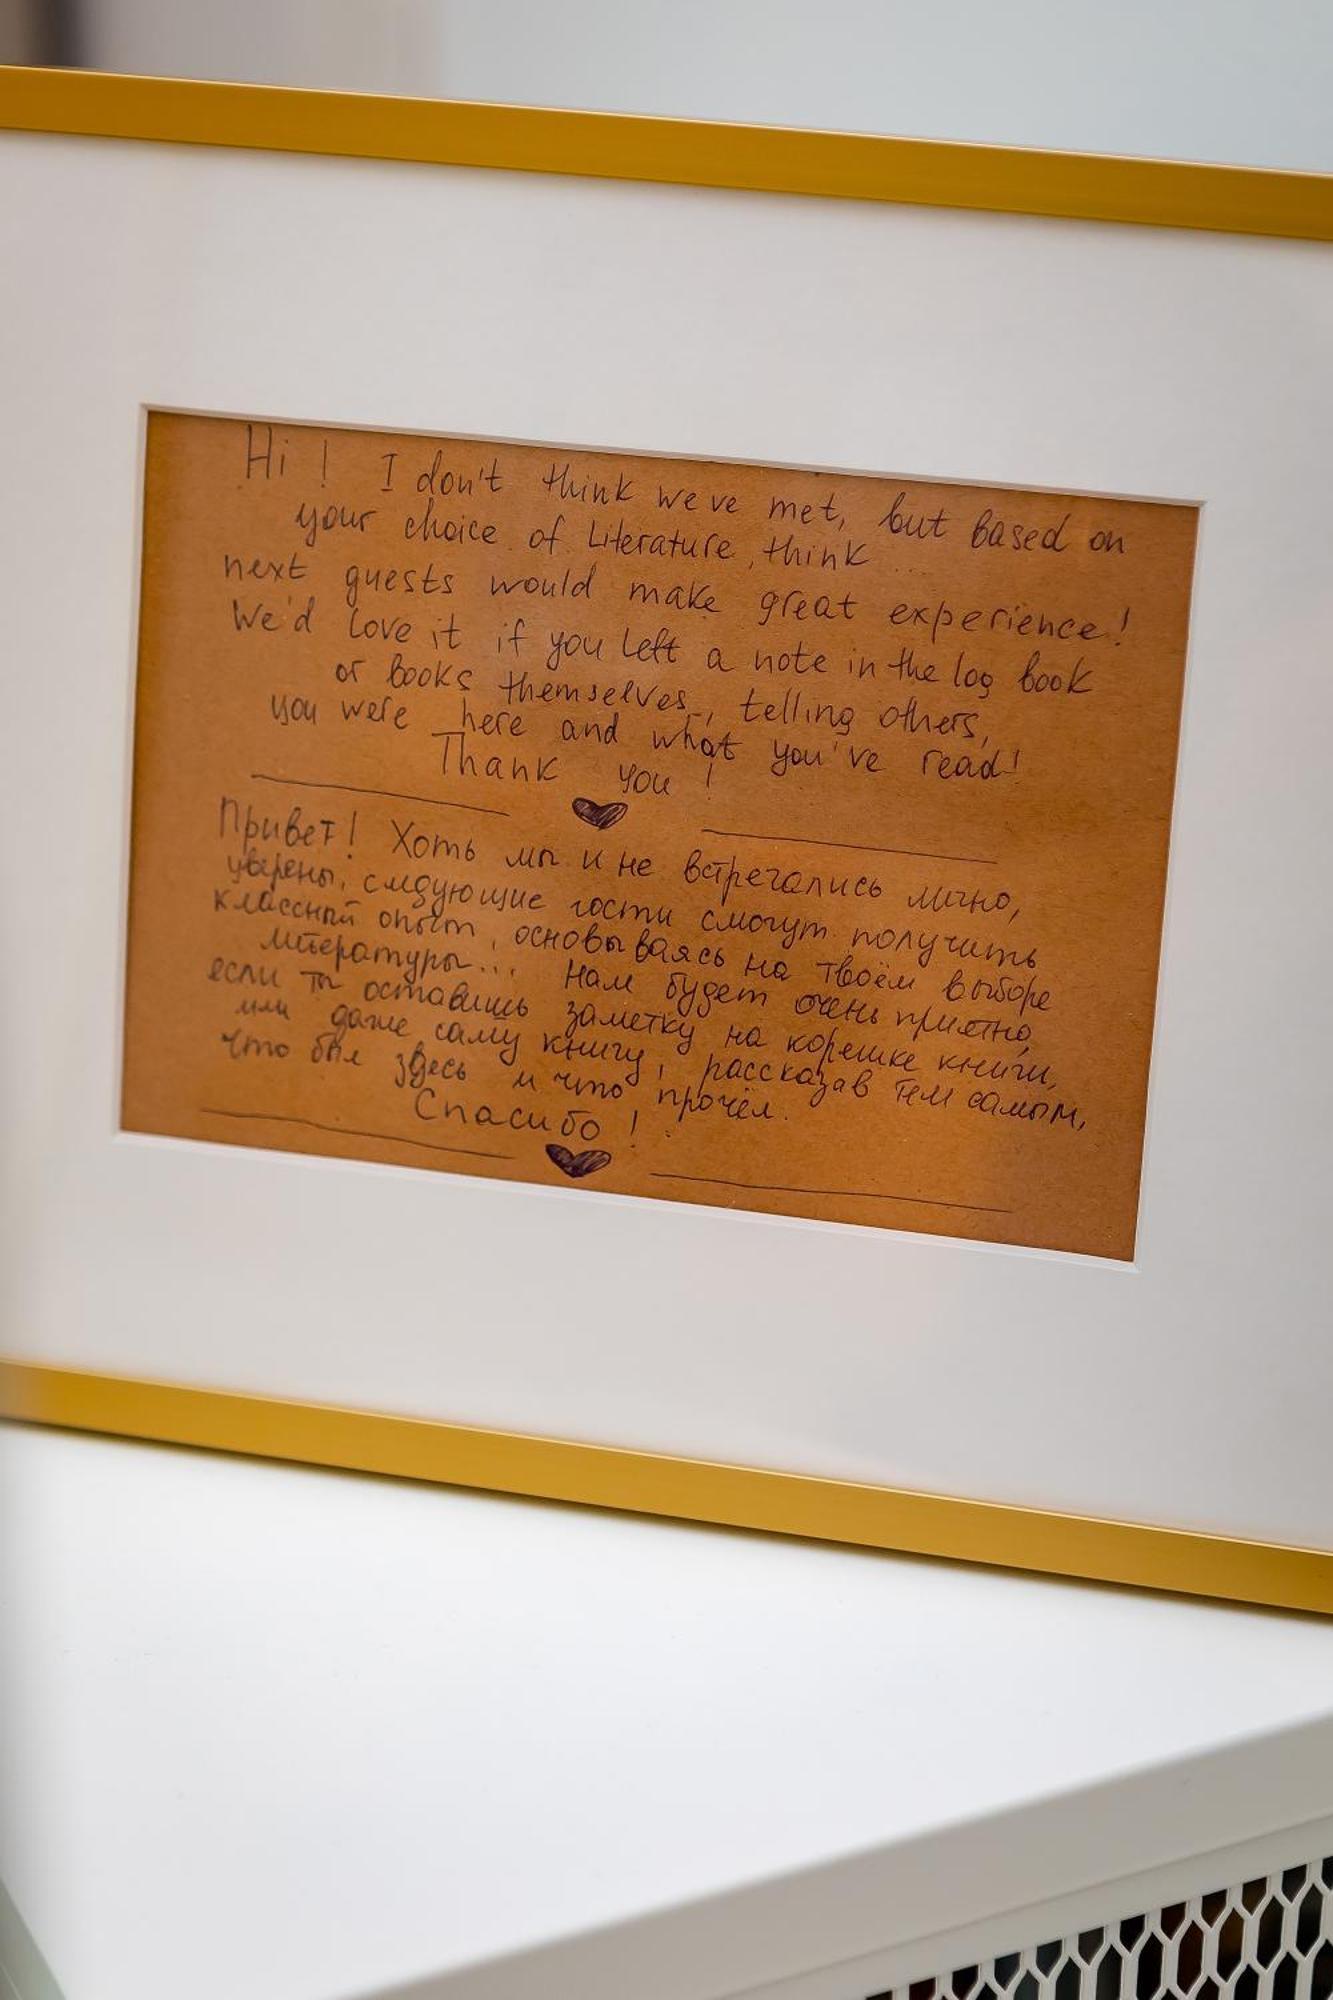 Hi! I don't think we've met, but based on
your choice of Literature, think ...
next guests would make great experience!
We'd Love it if you Left a note in the log book
or books themselves, telling others,
you were here and what you've read!
Thank you!
Привет! Хоть мы и не встречались лично,
уверены, следующие гости смогут получить
классный опыт, основываясь на твоём выборе
литературы... Нам будет очень приятно,
если ты оставишь заметку на корешке книги,
или даже саму книгу, рассказав тем самым,
что был здесь и что прочёл.
Спасибо!